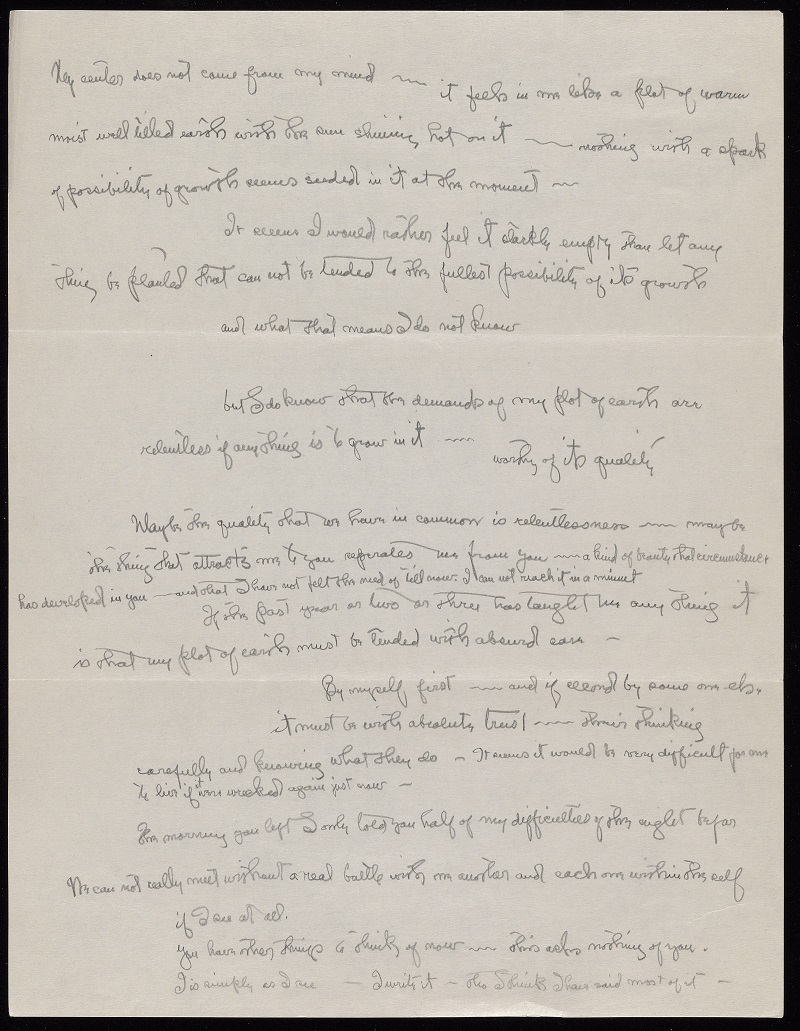 My center does not come from my mind — it feels in me like a plot of warm
moist well tilled earth with the sun shining hot on it — nothing with a spark
of possibility of growth seems seeded in it at the moment —
It seems I would rather feel it starkly empty than let any
thing be planted that can not be tended to the fullest possibility of its growth
and what that means I do not know
but I do know that the demands of my plot of earth are
relentless if anything is to grow in it — worthy of its quality
Maybe the quality that we have in common is relentlessness — maybe
the thing that attracts me to you separates me from you — a kind of beauty that circumstance
has developed in you — and that I have not felt the need of till now. I can not reach it in a minute
If the past year or two or three has taught me any thing it
is that my plot of earth must be tended with absurd care —
By myself first — and if second by some one else
it must be with absolute trust — their thinking
carefully and knowing what they do — It seems it would be very difficult for me
to live if it were wrecked again just now —
The morning you left I only told you half of my difficulties of the night before
We can not really meet without a real battle with one another and each one within the self
if I see at all.
You have other things to think of now — this asks nothing of you.
It is simply as I see — I write it — tho I think I have said most of it —